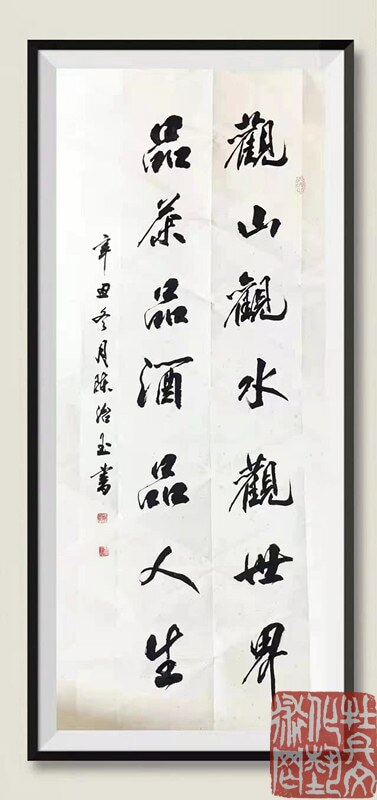 觀山觀水觀世界
品茶品酒品人生
辛丑冬月陈治玉書